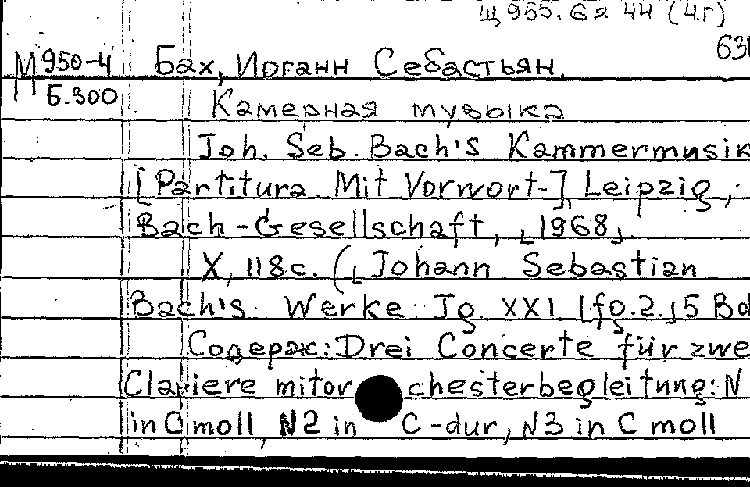 Щ 955.6я 44 (4г)
630
М 950-4 Бах, Иоганн Себастьян.
Б.300 Камерная музыка
Joh. Seb. Bach's Kammermusik
[Partitura. Mit Vorwort-] Leipzig,
Bach-Gesellschaft, [1968].
X, 118с. ([Johann Sebastian
Bach's Werke Jg. XXI Lfg.2.] 5 Bd
Содерж: Drei Concerte für zwe
Claviere mit or chesterbegleitung: N
in C moll, N2 in C-dur, N3 in C moll